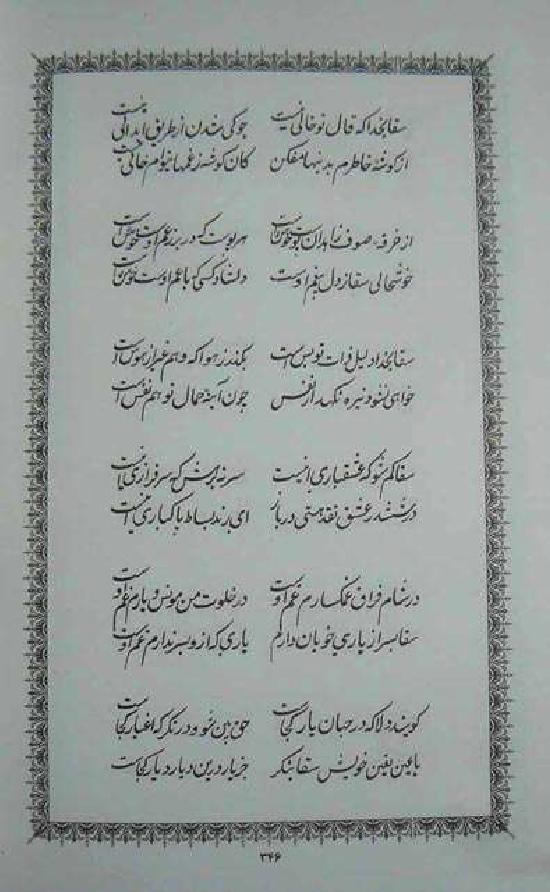 سقا بخدا که قال تو حالی نیست جوکی شدن از طریق ابدالی نیست
از گوشهٔ خاطرم بد نبها مفکن کان گوشه ز غمهای توام خالی نیست
از خرقه صوف زاهدان پوست خوشست هر پوست که در بر زغم اوست خوشست
خوشحالی سقا ز دل بیغم اوست دلشاد کسی که با غم اوست خوشست
سقا بخدا دلیل ذات تو بس است بگذر ز هوا که و هم غیر از هوس است
خواهی نشود تیره نگهدار نفس چون آینهٔ جمال تو هم نفس است
سقا کم شو که عشقبازی اینست سر نه پیش که سرفرازی اینست
در ششدر عشق نقد هستی در باز ای رند بساط پاکبازی اینست
در شام فراق غمگسارم غم اوست در خلوت من مونس و یارم غم اوست
سقا بسر از یاری خوبان دارم یاری که ازو بسر ندارم غم اوست
گویند دلا که در جهان یار کجاست حق بین شو و در نگر که اغیار کجاست
با عین یقین خویش سقا بنگر جز یار درین دیار دیار کجاست
۳۴۶